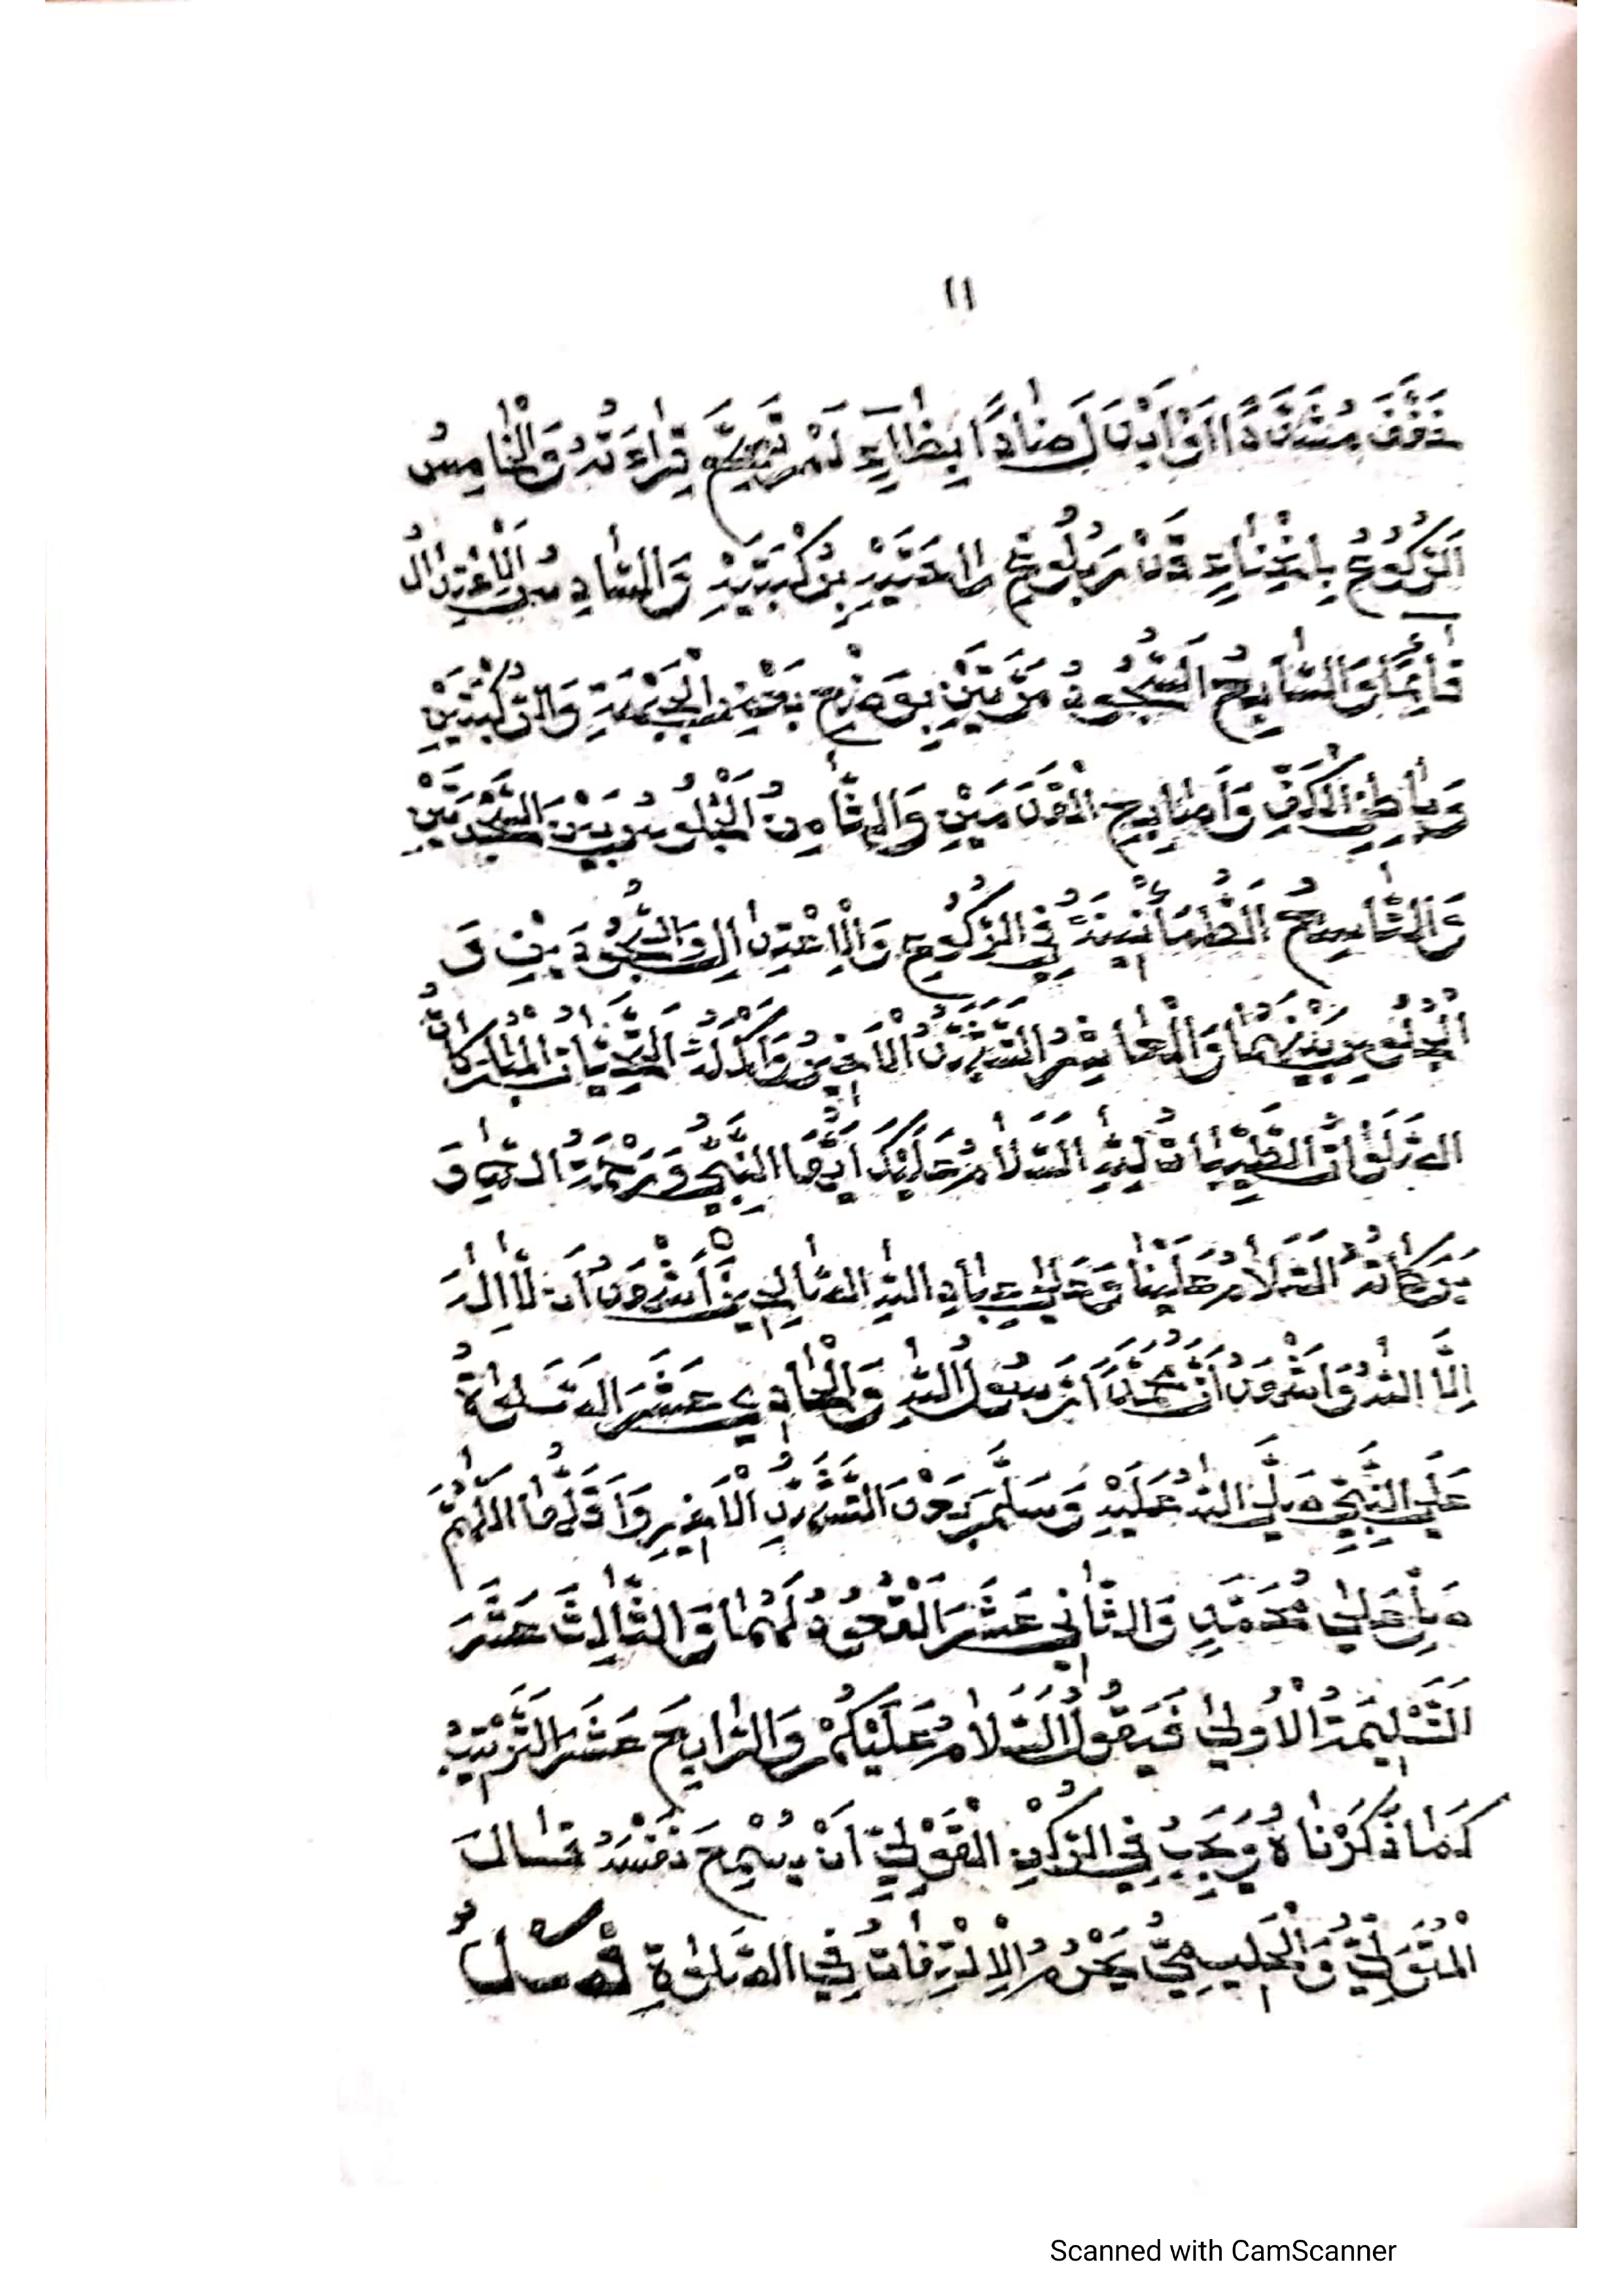 ١١
خَفَّفَ مُشَدَّدًا اَوْ اَبْدَلَ ضَادًا بِظَاءٍ لَمْ تَصِحَّ قِرَاءَتُهُ وَالْخَامِسُ
اَلرُّكُوعُ بِانْحِنَاءٍ قَدْرَ بُلُوغِ رَاحَتَيْهِ رُكْبَتَيْهِ وَالسَّادِسُ اَلْاِعْتِدَالُ
قَائِمًا وَالسَّابِعُ اَلسُّجُودُ مَرَّتَيْنِ بِوَضْعِ بَعْضِ الْجَبْهَةِ وَالرُّكْبَتَيْنِ
وَبَاطِنِ الْكَفِّ وَاَصَابِعِ الْقَدَمَيْنِ وَالثَّامِنُ الْجُلُوسُ بَيْنَ السَّجْدَتَيْنِ
وَالتَّاسِعُ اَلطُّمَأْنِينَةُ فِي الرُّكُوعِ وَالْاِعْتِدَالِ وَالسُّجُودَيْنِ وَ
الْجُلُوسِ بَيْنَهُمَا وَالْعَاشِرُ التَّشَهُّدُ الْاَخِيرُ وَاَكْمَلُهُ اَلتَّحِيَّاتُ الْمُبَارَكَاتُ
الصَّلَوَاتُ الطَّيِّبَاتُ لِلّٰهِ اَلسَّلَامُ عَلَيْكَ اَيُّهَا النَّبِيُّ وَرَحْمَةُ اللّٰهِ وَ
بَرَكَاتُهُ اَلسَّلَامُ عَلَيْنَا وَعَلٰى عِبَادِ اللّٰهِ الصَّالِحِينَ اَشْهَدُ اَنْ لَا اِلٰهَ
اِلَّا اللّٰهُ وَاَشْهَدُ اَنَّ مُحَمَّدًا رَسُولُ اللّٰهِ وَالْحَادِي عَشَرَ الصَّلٰوةُ
عَلَى النَّبِيِّ صَلَّى اللّٰهُ عَلَيْهِ وَسَلَّمَ بَعْدَ التَّشَهُّدِ الْاَخِيرِ وَاَقَلُّهَا اَللّٰهُمَّ
صَلِّ عَلٰى مُحَمَّدٍ وَالثَّانِي عَشَرَ الْقُعُودُ لَهُمَا وَالثَّالِثَ عَشَرَ
اَلتَّسْلِيمَةُ الْاُولٰى فَيَقُولُ اَلسَّلَامُ عَلَيْكُمْ وَالرَّابِعَ عَشَرَ التَّرْتِيبُ
كَمَا ذَكَرْنَاهُ وَيَجِبُ فِي الرُّكْنِ الْقَوْلِيِّ اَنْ يُسْمِعَ نَفْسَهُ قَالَ
الْمُتَوَلِّيُّ وَالْحَلِيمِيُّ يَحْرُمُ الْاِلْتِفَاتُ فِي الصَّلٰوةِ فَصْلٌ
Scanned with CamScanner